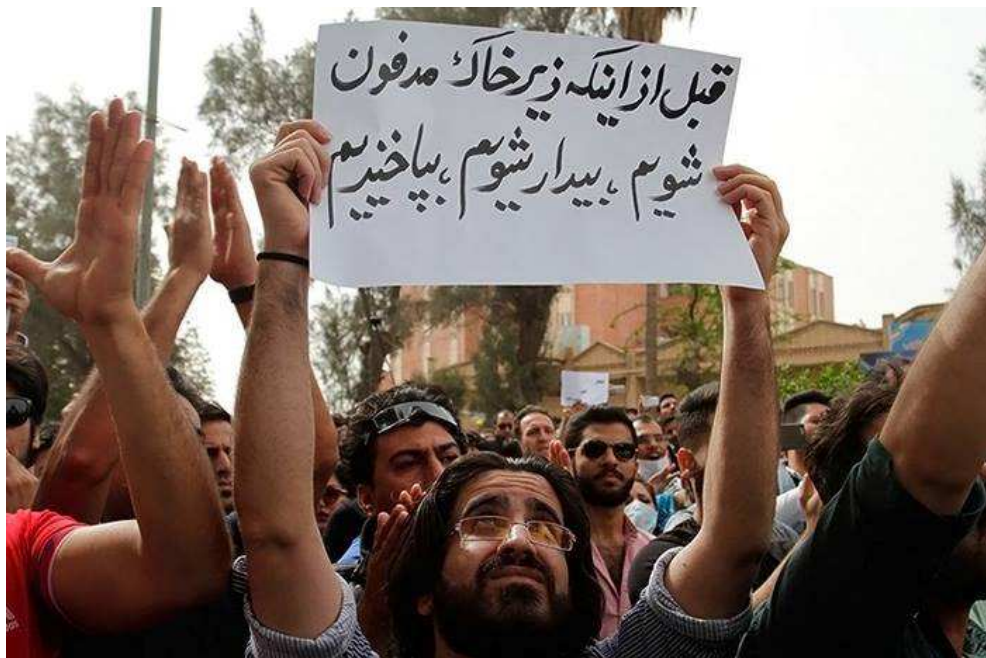 قبل از اینکه زیر خاک مدفون
شویم، بیدار شویم، بپاخیزیم